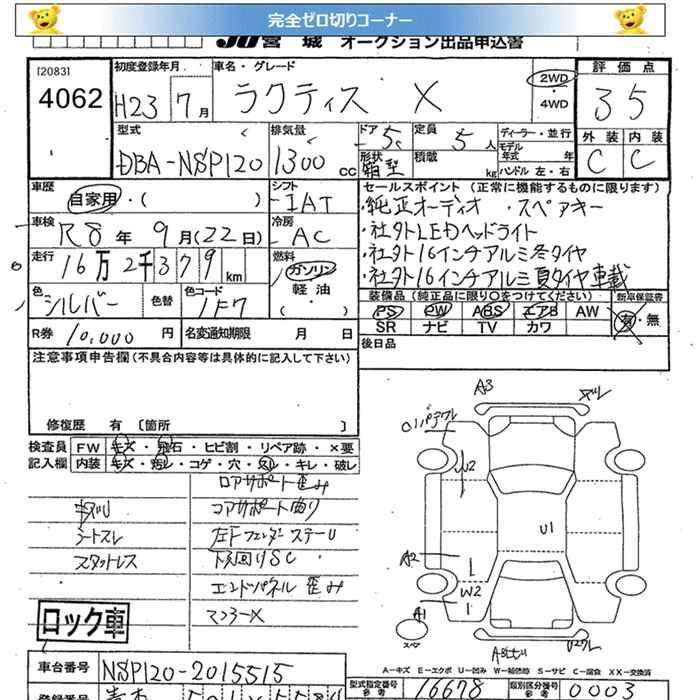 完全ゼロ切りコーナー
JU宮城 オークション出品申込書
[2083]
4062
初度登録年月 H23 7月
車名・グレード ラクティス X
2WD
4WD
評価点 35
型式 DBA-NSP120
排気量 1300 cc
ドア 5
定員 5人
形状 箱型
積載 kg
ディーラー・並行
モデル年式 年
ハンドル 左・右
外装 内装
C C
車歴 自家用・( )
シフト IAT
車検 R8年 9月(22日)
冷房 AC
走行 16万2千379km
燃料 ガソリン 軽油
色 シルバー 色替 色コード 1F7
R券 10,000円 名変通知期限 月 日
セールスポイント (正常に機能するものに限ります)
・純正オーディオ ・スペアキー
・社外LEDヘッドライト
・社外16インチアルミ冬タイヤ
・社外16インチアルミ夏タイヤ車載
装備品 (純正品に限り○をつけてください) 新車保証書
PS PW ABS エアB AW 有・無
SR ナビ TV カワ
後日品
注意事項申告欄(不具合内容等は具体的に記入して下さい)
修復歴 有 [箇所 ]
検査員 FW キズ・飛石・ヒビ割・リペア跡・×要
記入欄 内装 キズ・汚レ・コゲ・穴・スレ・キレ・破レ
ロアサポート歪み
コアサポート曲り
シートスレ
左Fフェンダーステー
スタットレス
下回りSC
エンドパネル歪み
ロック車
A3
U2
U1
A2
W2
A1
スペア
A-キズ E-エクボ U-凹み W-補修跡 S-サビ C-腐食 XX-交換済
車台番号 NSP120-2015515
型式指定番号 参考 16678
類別区分番号 参考 0003
登録番号